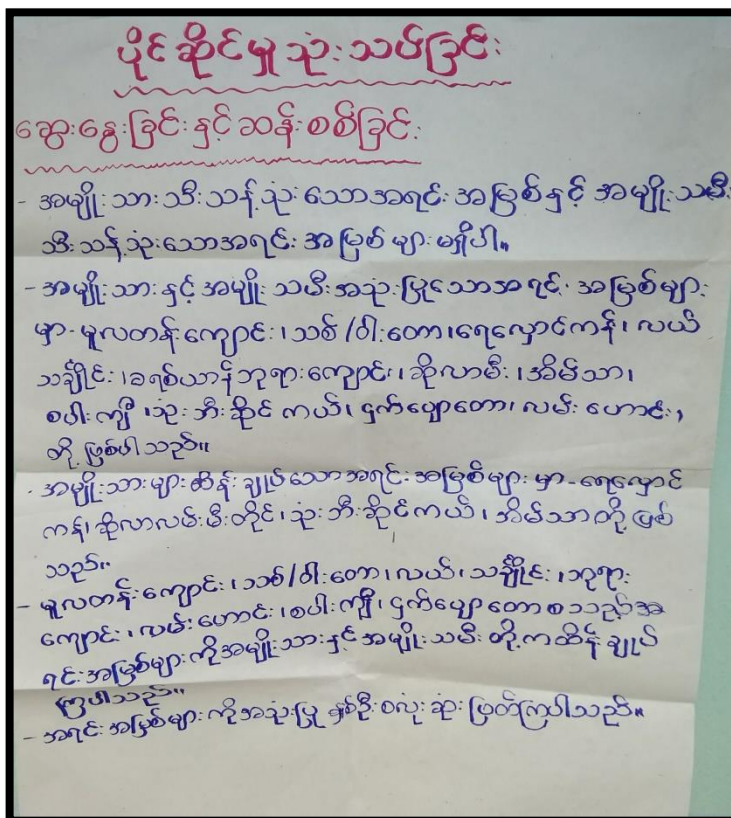 ပိုင်ဆိုင်မှုသုံးသပ်ခြင်း
ဆွေးနွေးခြင်းနှင့်ဆန်းစစ်ခြင်း
- အမျိုးသားသီးသန့်သုံးသောအရင်းအမြစ်နှင့် အမျိုးသမီး
သီးသန့်သုံးသောအရင်းအမြစ်များမရှိပါ။
- အမျိုးသားနှင့်အမျိုးသမီးအသုံးပြုသောအရင်းအမြစ်များ
မှာ- မူလတန်းကျောင်း၊သစ်/ဝါးတော၊ရေလှောင်ကန်၊လယ်
သင်္ချိုင်း၊ခရစ်ယာန်ဘုရားကျောင်း၊ဆိုလာမီး၊အိမ်သာ၊
စပါးကျီ၊သုံးဘီးဆိုင်ကယ်၊ငှက်ပျောတော၊လမ်းဟောင်း၊
တို့ဖြစ်ပါသည်။
- အမျိုးသားများထိန်းချုပ်သောအရင်းအမြစ်များမှာ-ရေလှောင်
ကန်၊ဆိုလာလမ်းမီးတိုင်၊သုံးဘီးဆိုင်ကယ်၊အိမ်သာတို့ဖြစ်
သည်။
- မူလတန်းကျောင်း၊သစ်/ဝါးတော၊လယ်၊သင်္ချိုင်း၊ဘုရား
ကျောင်း၊လမ်းဟောင်း၊စပါးကျီ၊ငှက်ပျောတောစသည့်အ
ရင်းအမြစ်များကိုအမျိုးသားနှင့်အမျိုးသမီးတို့ကထိန်းချုပ်
ကြပါသည်။
- အရင်းအမြစ်များကိုအသုံးပြုနှစ်ဦးစလုံးဆုံးဖြတ်ကြပါသည်။